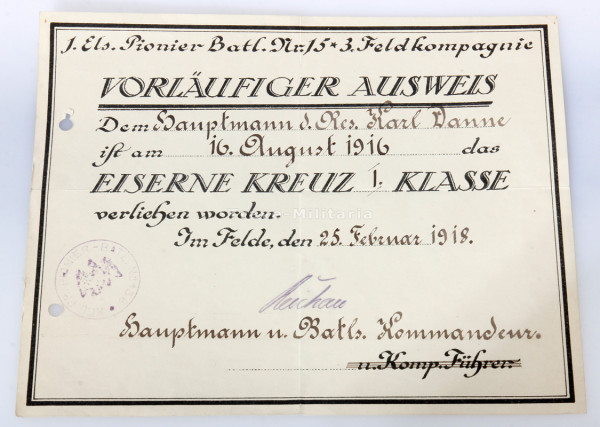 1. Els. Pionier Batl. Nr. 15 * 3. Feldkompagnie
VORLÄUFIGER AUSWEIS
Dem Hauptmann d. Res. Karl Vanne
ist am 16. August 1916 das
EISERNE KREUZ I. KLASSE
verliehen worden.
Militaria
Im Felde, den 25. Februar 1918.
Hauptmann u. Batls. Kommandeur.
u. Komp. Führer.